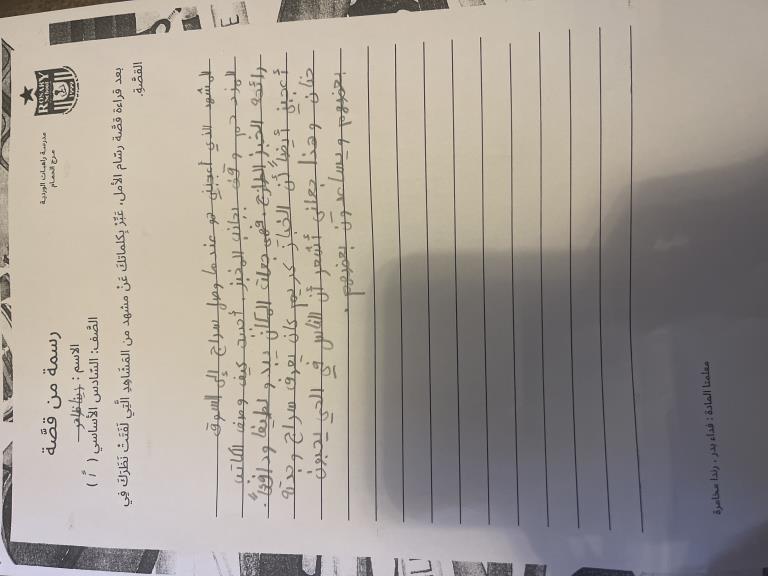 ROSARY SCHOOL
مدرسة راهبات الوردية
مرج الحمام
رسمة من قصّة
الاسم :
الصّف: السّادس الأساسي ( أ )
بعد قراءة قصّة رسّام الأمل، عَبِّرْ بِكلماتِكَ عَنْ مشهد من المَشاهِدِ الَّتِي لَفَتَتْ نَظَرَكَ فِي
القصّة.
المشهد الذي أعجبني هو عندما وصل سراج إلى السوق
المزدحم وقف بجانب المخبز، أحببت كيف وصف الكاتب
رائحة الخبز الطازج، فهي جعلت المكان يبدو لطيفًا ودافئًا.
أعجبني أيضًا أن الخباز كريم كان يعرف سراج وجدّه
حنان وهذا جعلني أشعر أن الناس في الحي يحبون
بعضهم ويساعدون بعضهم.
معلمتا المادة : فداء بدر ، رندا محامرة